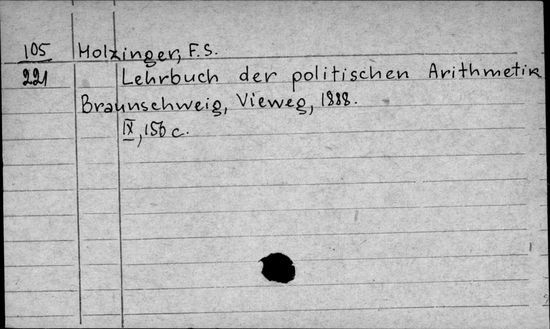 105 Holzinger, F.S.
221 Lehrbuch der politischen Arithmetik
Braunschweig, Vieweg, 1888.
IX, 156 c.